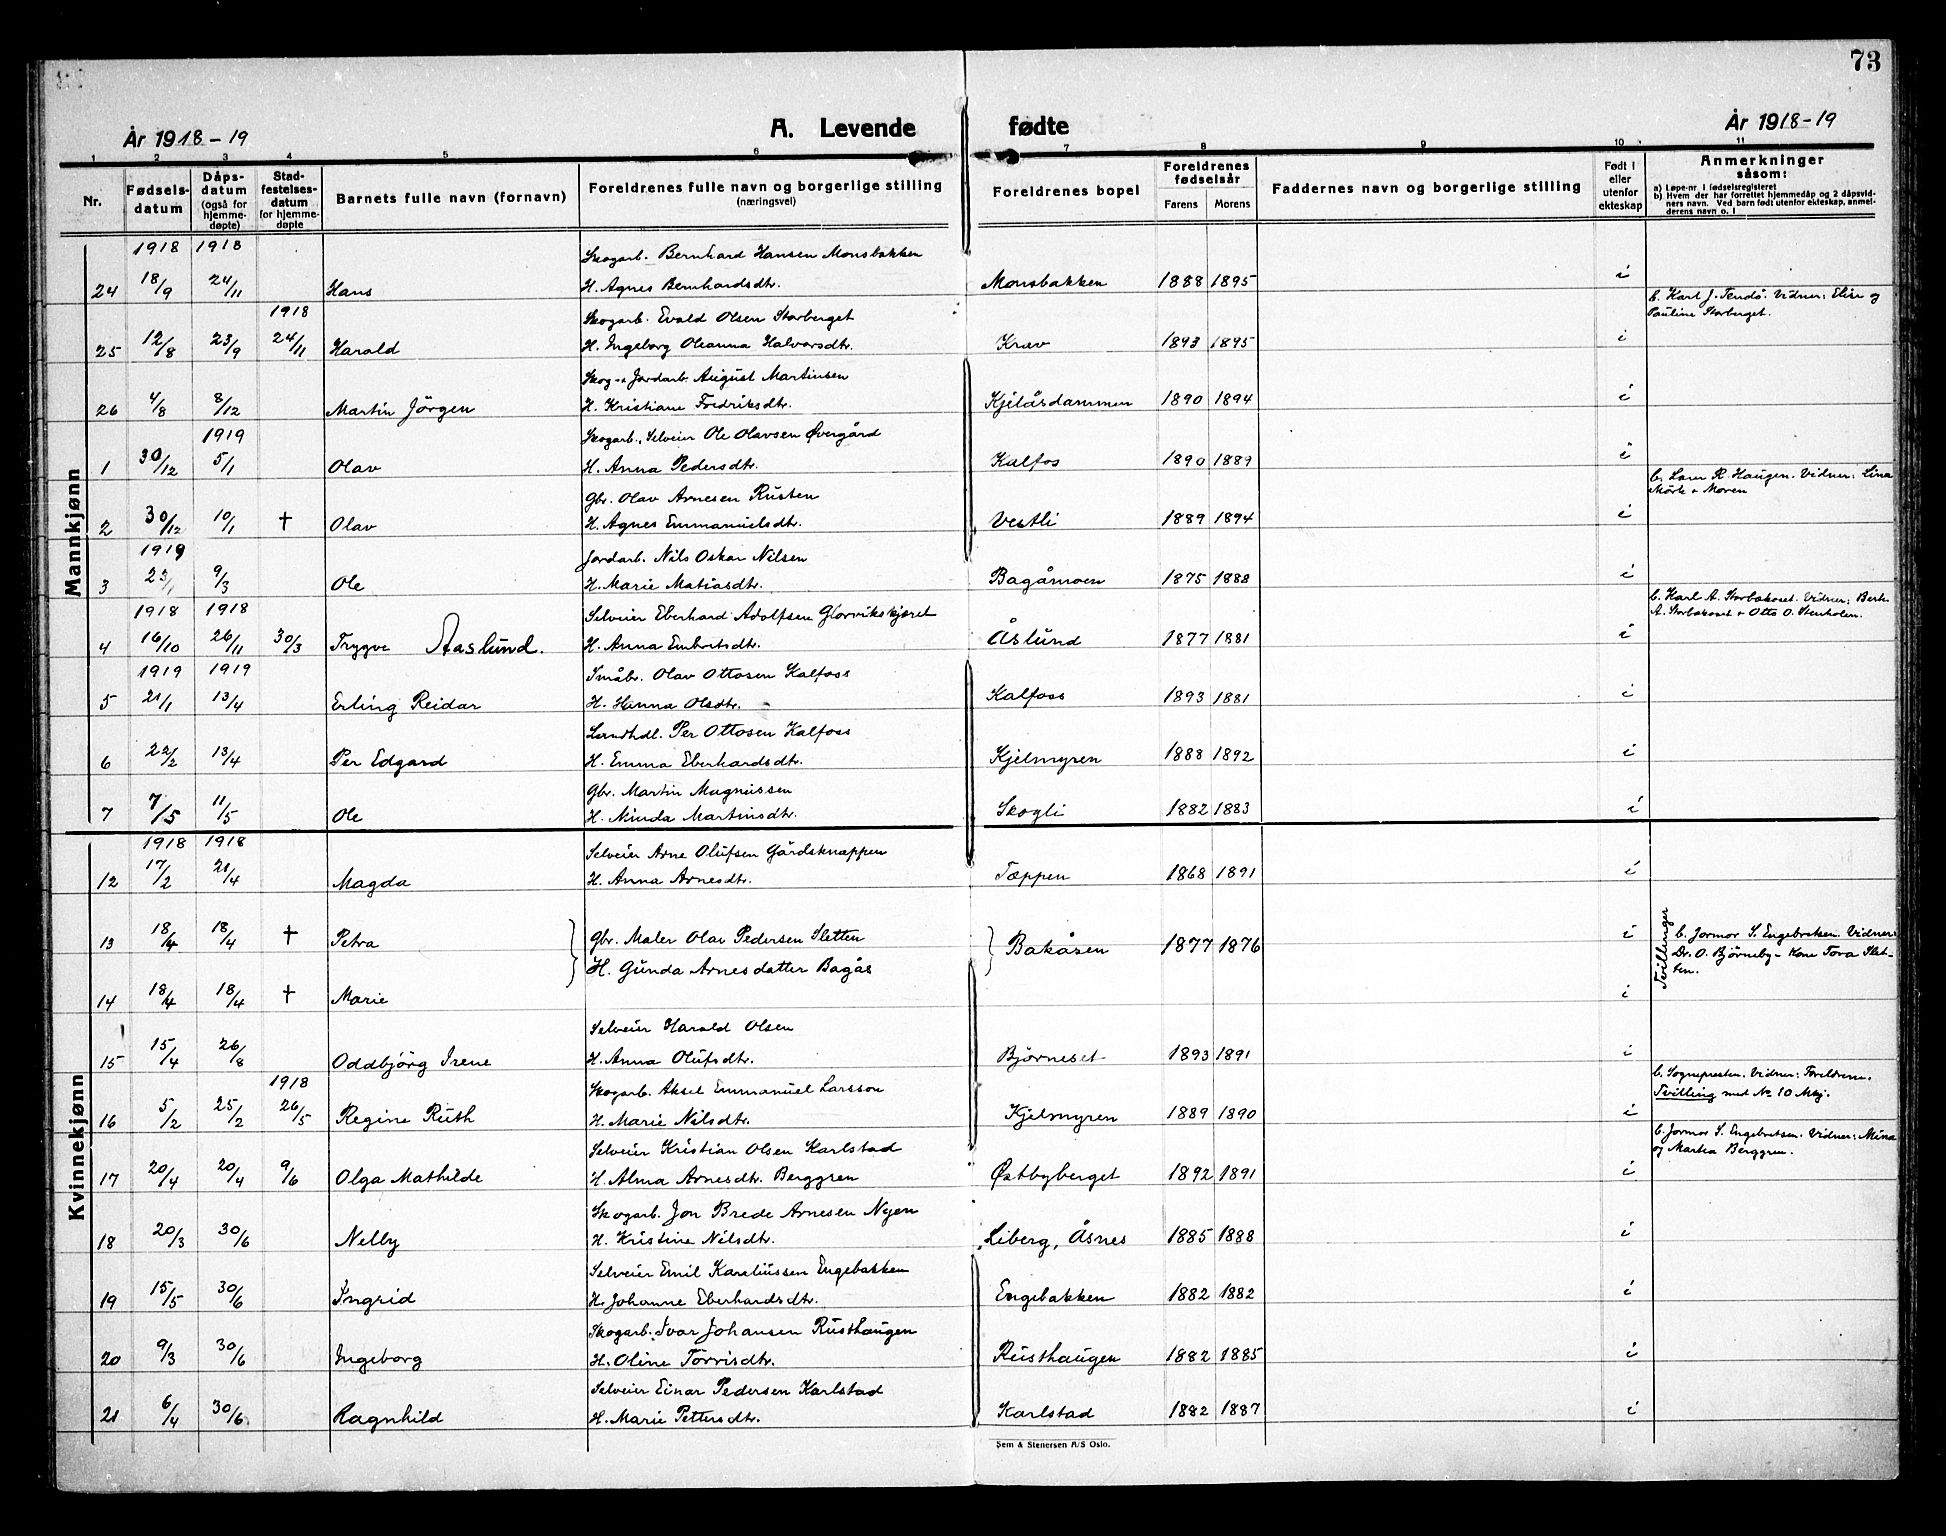 73
År 1918-19
A. Levende fødte
År 1918-19
1 2 3 4 5 6 7 8 9 10 11
Nr.
Fødsels-
datum
Dåps-
datum
(også for
hjemme-
døpte)
Stad-
festelses-
datum
for hjemme-
døpte
Barnets fulle navn (fornavn)
Foreldrenes fulle navn og borgerlige stilling
(næringsvei)
Foreldrenes bopel
Foreldrenes
fødselsår
Farens Morens
Faddernes navn og borgerlige stilling
Født i
eller
utenfor
ekteskap
Anmerkninger
såsom:
a) Løpe-nr. i fødselsregisteret
b) Hvem der har forrettet hjemmedåp og 2 dåpsvid-
ners navn. Ved barn født utenfor ekteskap, anmel-
derens navn o. l
Mannkjønn
1918 1918 Skogarb. Bernhard Hansen Monsbakken
24 18/9 24/11 Hans H. Agnes Bernhardsdtr. Monsbakken 1888 1895 i
1918 Skogarb. Evald Olsen Storberget b. Karl J. Tendö. Vidner: Elise og
Pauline Storberget.
25 12/8 23/9 24/11 Harald H. Ingeborg Oleanna Halvorsdtr. Krav 1893 1895 i
Skog- & Jordarb. August Martinsen
26 4/8 8/12 Martin Jörgen H. Kristiane Fredriksdtr. Kjelåsdammen 1890 1894 i
1919 Skogarb., Selveier Ole Olavsen Øvergård
1 30/12 5/1 Olav H. Anna Pedersdtr. Kalfos 1890 1889 i
Gbr. Olav Arnesen Rusten b. Lærer R. Haugen. Vidner: Lina
Mörk & Moren
2 30/12 10/1 † Olav H. Agnes Emmanuelsdtr. Vestli 1889 1894 i
1919 Jordarb. Nils Oskar Nilsen
3 23/1 9/3 Ole H. Marie Matiasdtr. Bagåmoen 1875 1888 i
1918 1918 Selveier Eberhard Adolfsen Glorvikskjæret b. Karl A. Storbakoset. Vidner: Berte
A. Storbakoset & Otto O. Stenholen.
4 16/10 26/11 30/3 Trygve Aaslund. H. Anna Embretsdtr. Åslund 1877 1881 i
1919 1919 Småbr. Olav Ottosen Kalfoss
5 21/1 13/4 Erling Reidar H. Hanna Olsdtr. Kalfoss 1893 1881 i
Landhdl. Per Ottosen Kalfoss
6 22/2 13/4 Per Edgard H. Emma Eberhardsdtr. Kjelmyren 1888 1892 i
Gbr. Martin Magnussen
7 7/5 11/5 Ole H. Minda Martinsdtr. Skogli 1882 1883 i
Kvinnekjønn
1918 1918 Selveier Arne Olufsen Gårdsknappen
12 17/2 21/4 Magda H. Anna Arnesdtr. Tæppen 1868 1891 i
13 18/4 18/4 † Petra Gbr. Maler Olav Pedersen Sletten Bakåsen 1877 1876 i Tvillinger b. Jormor S. Engebretsen. Vidner:
Dr. O. Björneby - Kone Tora Slet-
ten.
H. Gunda Arnesdatter Bagås
14 18/4 18/4 † Marie i
Selveier Harald Olsen
15 15/4 26/8 Oddbjörg Irene H. Anna Olufsdtr. Björneset 1893 1891 i
1918 Skogarb. Aksel Emmanuel Larsson b. Sognepresten. Vidner: Foreldrene.
Tvilling med No 10 Mkj.
16 5/2 25/2 26/5 Regine Ruth H. Marie Nilsdtr. Kjelmyren 1889 1890 i
Selveier Kristian Olsen Karlstad b. Jormor S. Engebretsen. Vidner: Mina
og Martea Berggren.
17 20/4 20/4 9/6 Olga Mathilde H. Alma Arnesdtr. Berggren Östbyberget 1892 1891 i
Skogarb. Jon Brede Arnesen Nyen
18 20/3 30/6 Nelly H. Kristine Nilsdtr. Liberg, Åsnes 1885 1888 i
Selveier Emil Kareliussen Engebakken
19 15/5 30/6 Ingrid H. Johanne Eberhardsdtr. Engebakken 1882 1882 i
Skogarb. Ivar Johansen Rusthaugen
20 9/3 30/6 Ingeborg H. Oline Torrisdtr. Rusthaugen 1882 1885 i
Selveier Einar Pedersen Karlstad
21 6/4 30/6 Ragnhild H. Marie Pettersdtr. Karlstad 1882 1887 i
Sem & Stenersen A/S Oslo.